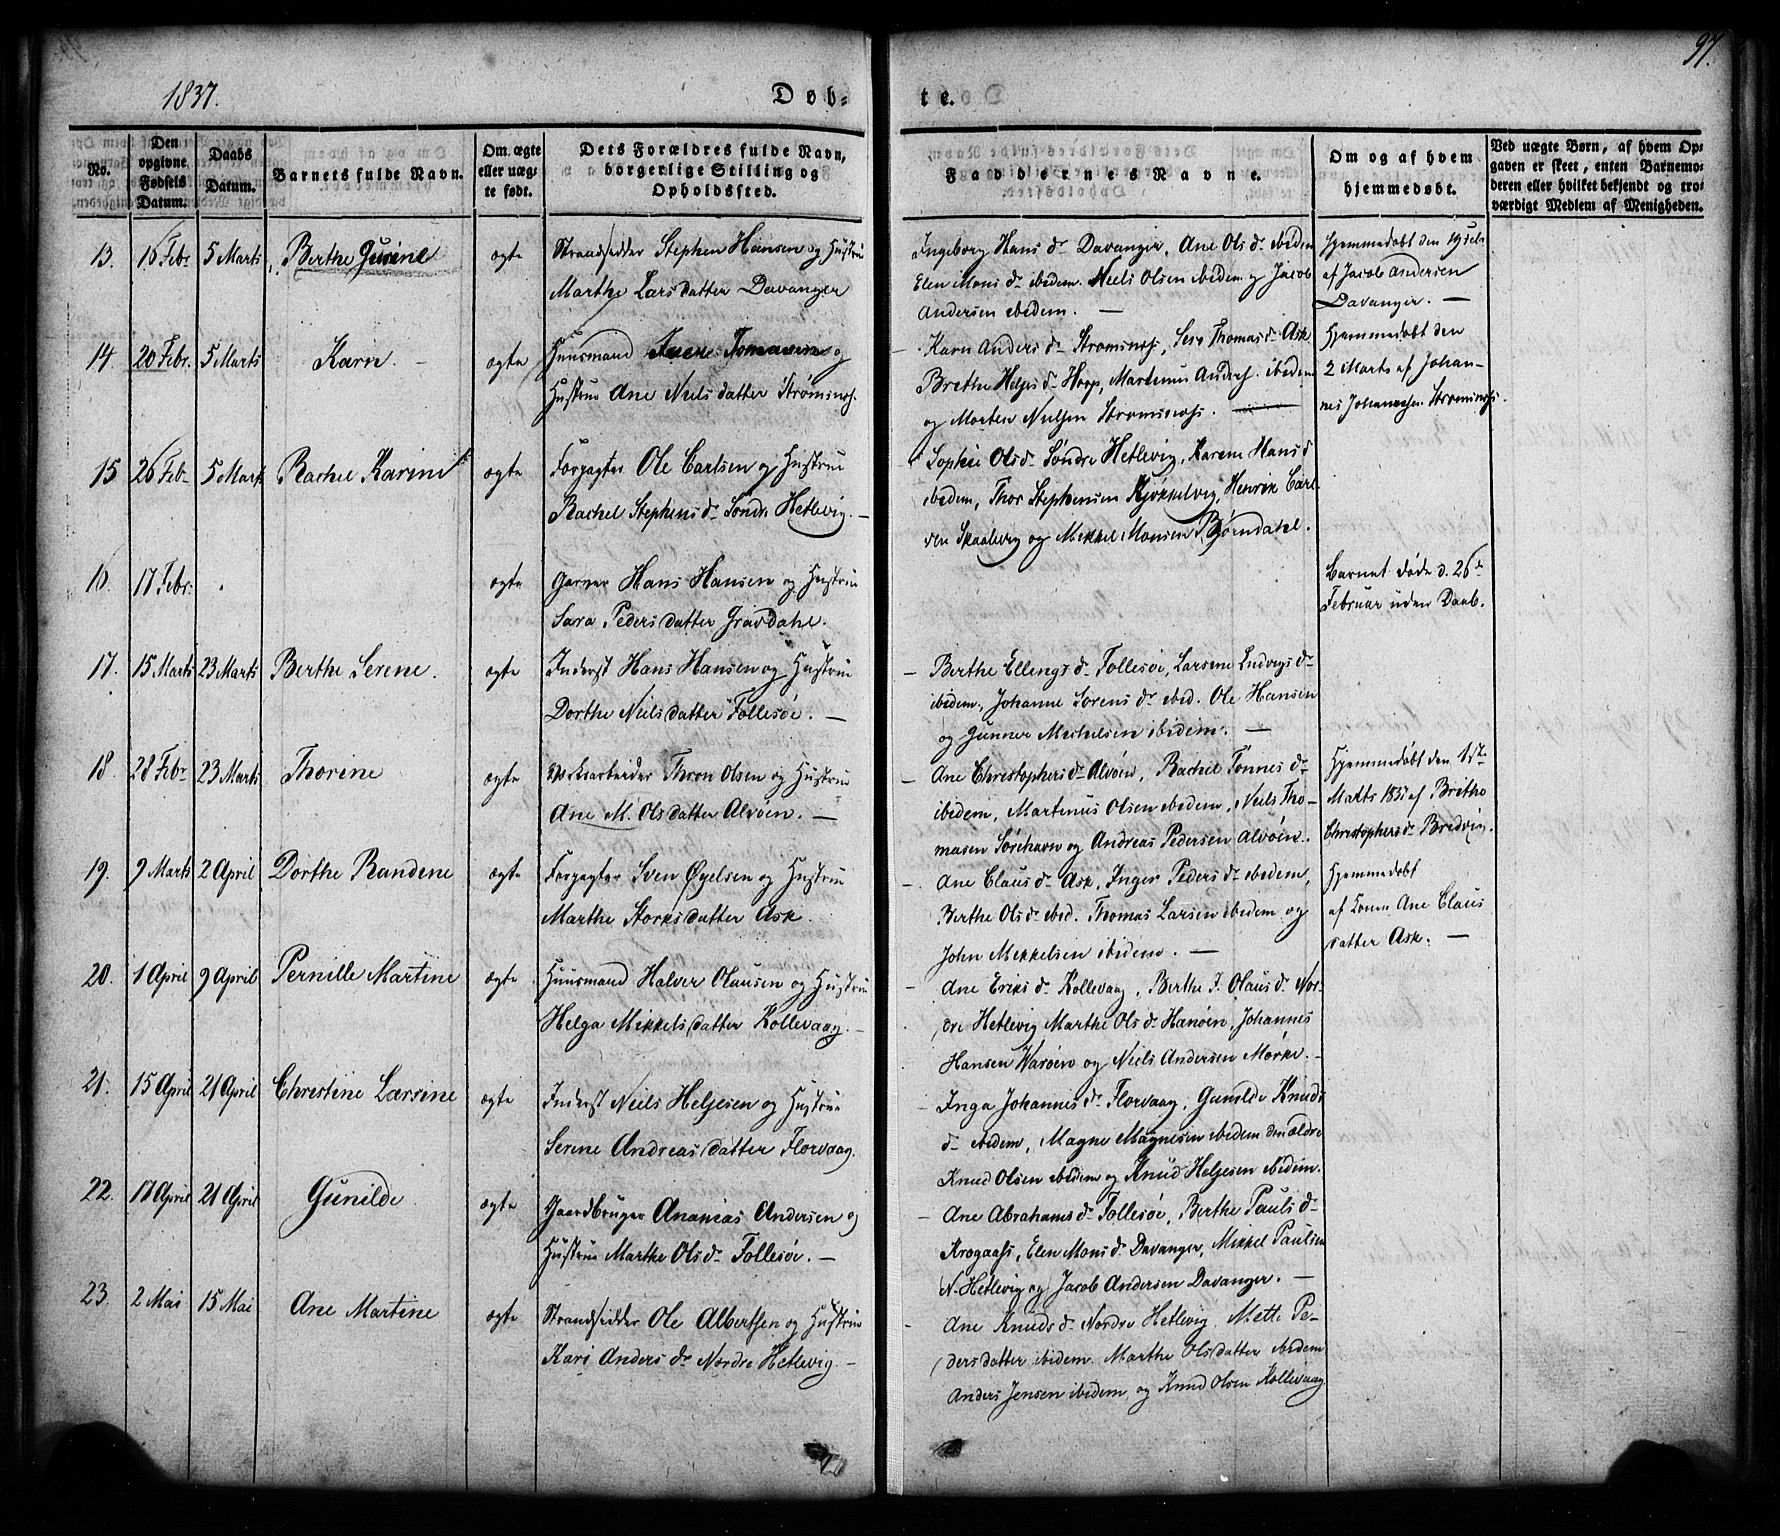 1837.
Døb-
te.
97.
No.
Den opgivne Fødsels Datum.
Daabs Datum.
Barnets fulde Navn.
Om ægte eller uægte født.
Dets Forældres fulde Navn, borgerlige Stilling og Opholdssted.
Faddernes Navne.
Om og af hvem hjemmedøbt.
Ved uægte Børn, af hvem Opgaven er skeet, enten Barnemoderen eller hvilket bekjendt og troværdigt Medlem af Menigheden.
13. 16 Febr 5 Marts Berthe Gurine ægte Strandsidder Stephen Hansen og Hustrue
Marthe Larsdatter Davanger
Ingeborg Hans dr Davanger, Ane Ols dr ibidem
Elen Mons dr ibidem. Niels Olsen ibidem og Jacob
Andersen ibidem. —
Hjemmedøbt den 19
af Jacob Andersen
Davanger. —
14. 20 Febr. 5 Marts Karn. — ægte Huusmand og
Hustrue Ane Nielsdatter Strømsnes.
Karn Anders dr Strømsnes, Thomas dr Ask
Brethe Helges dr Hoop, Martinus Anders. ibidem
og Morten Nielsen Strømsnes.
Hjemmedøbt den
2 Marts af Johan-
nes Johannesen Strømsnes.
15 26 Feb 5 Mart Rachel Karine ægte Forpagter Ole Carlsen og Hustrue
Rachel Stephens dr Søndre Hetlevig. —
Sophie Ols dr Søndre Hetlevig, Karen Hans d
ibidem, Thor Stephensen Kjøkkelvig, Henrik Carl-
sen Skaalevig og Mikkel Monsen Bjørndahl.
16. 17 Febr. ægte Garver Hans Hansen og Hustrue
Sara Pedersdatter Gravdahl.
Barnet døde d. 26 de
Februar uden Daab.
17. 15 Marts 23 Marts Berthe Serene. ægte Inderst Hans Hansen og Hustrue
Dorthe Nielsdatter Follesøe. —
— Berthe Ellings dr Follesøe, Larsine Ludvigs dr
ibidem, Johanne Sørens dr ibid. Ole Hansen
og Gunner Michelsen ibidem. —
18. 28 Febr 23 Marts Thorine ægte Thron Olsen og Hustrue
Ane M. Olsdatter Alvøen. —
— Ane Christophers dr Alvøen, Rachel Tønnes dr
ibidem, Martinus Olsen ibidem, Niels Tho-
masen Sørehavn og Andreas Pedersen Alvøen.
Hjemmedøbt den 1ste
Marts 1837 af Brithe
Christophers dr Bredvig.
19. 9 Marts 2 April Dorthe Randine ægte Forpagter Sven Øyelsen og Hustrue
Marthe Storksdatter Ask.
— Ane Claus dr Ask, Inger Peders dr ibidem,
Berthe Ols dr ibid. Thomas Larsen ibidem og
John Mikkelsen ibidem. —
Hjemmedøbt
af Ane Claus
datter Ask. —
20. 1 April 9 April Pernille Martine ægte Huusmand Halver Olausen og Hustrue
Helga Mikkelsdatter Kollevaag. —
— Ane Eriks dr Kollevaag, Berthe J. Olaus dr Nor-
dre Hetlevig Marthe Ols dr Hanøen, Johannes
Hansen Warøen og Niels Andersen Mørke. —
21. 15 April 21 April Christine Larsine ægte Inderst Niels Helgesen og Hustrue
Serene Andreasdatter Florvaag.
— Inga Johannes dr Florvaag, Gunilde Knuds
dr ibidem, Magne Magnesen ibidem den ældre
Knud Olsen ibidem og Knud Helgesen ibidem.
22. 17 April 21 April Gunilde ægte Gaardbruger Ananias Andersen og
Hustrue Marthe Ols dr Follesøe. —
— Ane Abrahams dr Follesøe, Berthe Pauls dr
Krogaas, Elen Mons dr Davanger, Mikkel Paulsen
N. Hetlevig og Jacob Andersen Davanger. —
23. 2 Mai 15 Mai Ane Martine ægte Strandsidder Ole Albertsen og Hustrue
Kari Anders dr Nordre Hetlevig. —
— Ane Knuds dr Nordre Hetlevig. Mette Pe-
dersdatter ibidem. Marthe Olsdatter ibidem
Anders Jensen ibidem, og Knud Olsen Kollevaag.